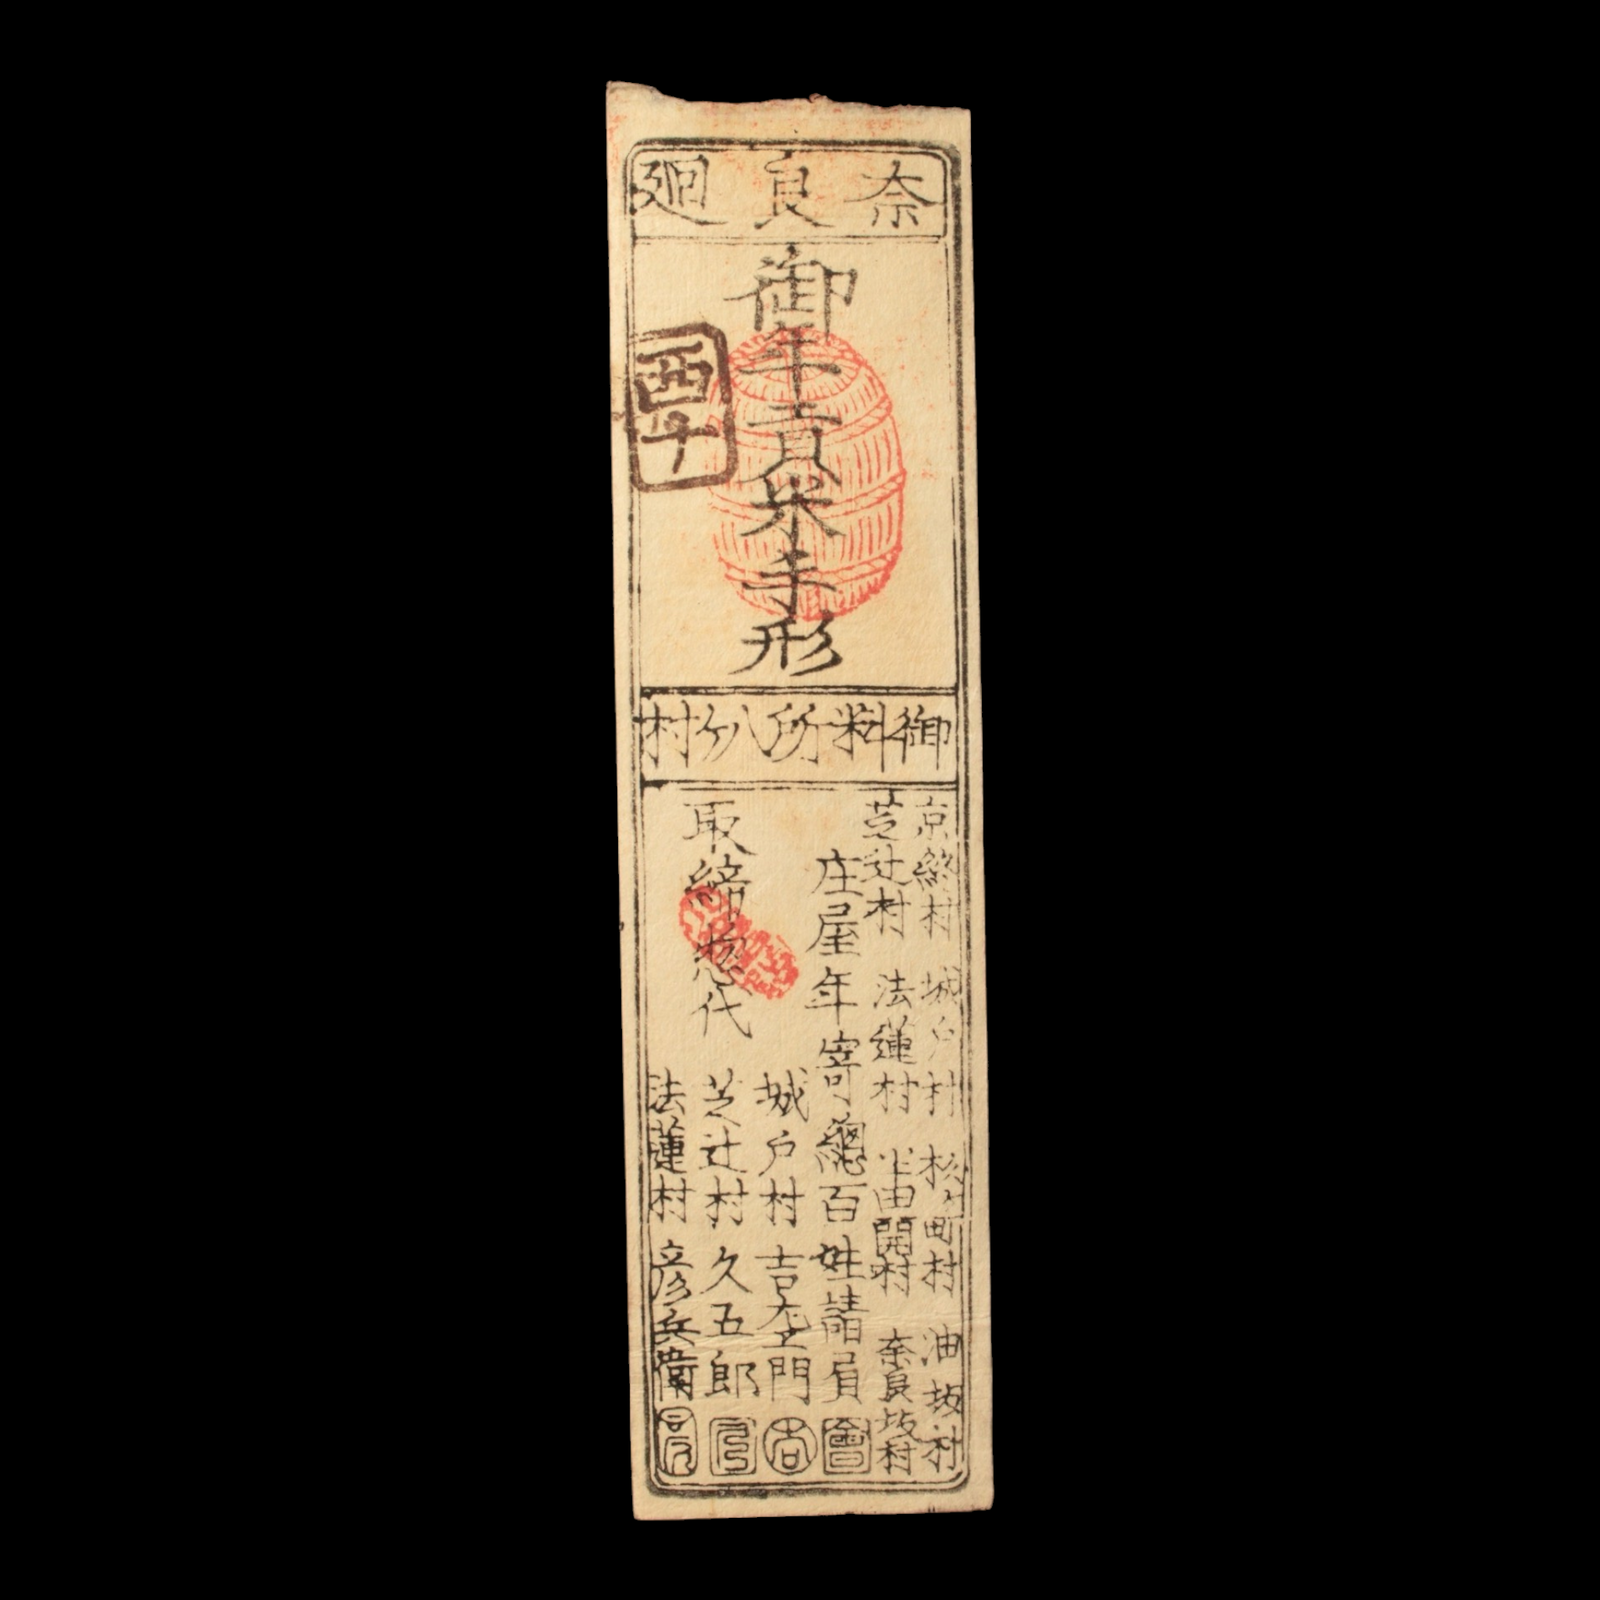 奈良廻
御年貢米手形
酉年
御料所八ケ村
京終村 城戸村 杉ケ町村 油坂村
芝辻村 法蓮村 半田開村 奈良坂村
庄屋年寄總百姓請員 會
取締惣代
城戸村 吉左エ門 吉
芝辻村 久五郎
法蓮村 彦兵衛